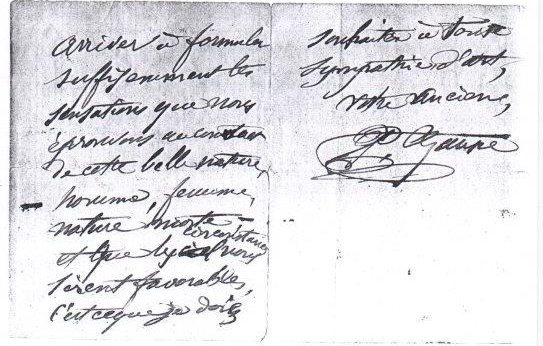 arriver à formuler
suffisemment les
sensations que nous
éprouvons au contact
de cette belle nature,
homme, femme,
nature morte –
et que les circonstances nous
soient favorables,
c'est ce que je dois
souhaiter à toute
sympathie d'art,
votre ancien,
P. Cézanne